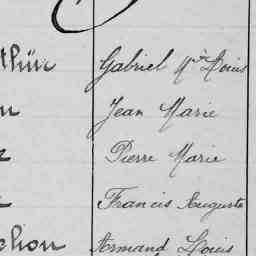 thür Gabriel Mie Louis
Jean Marie
Pierre Marie
Francis Auguste
Armand Louis